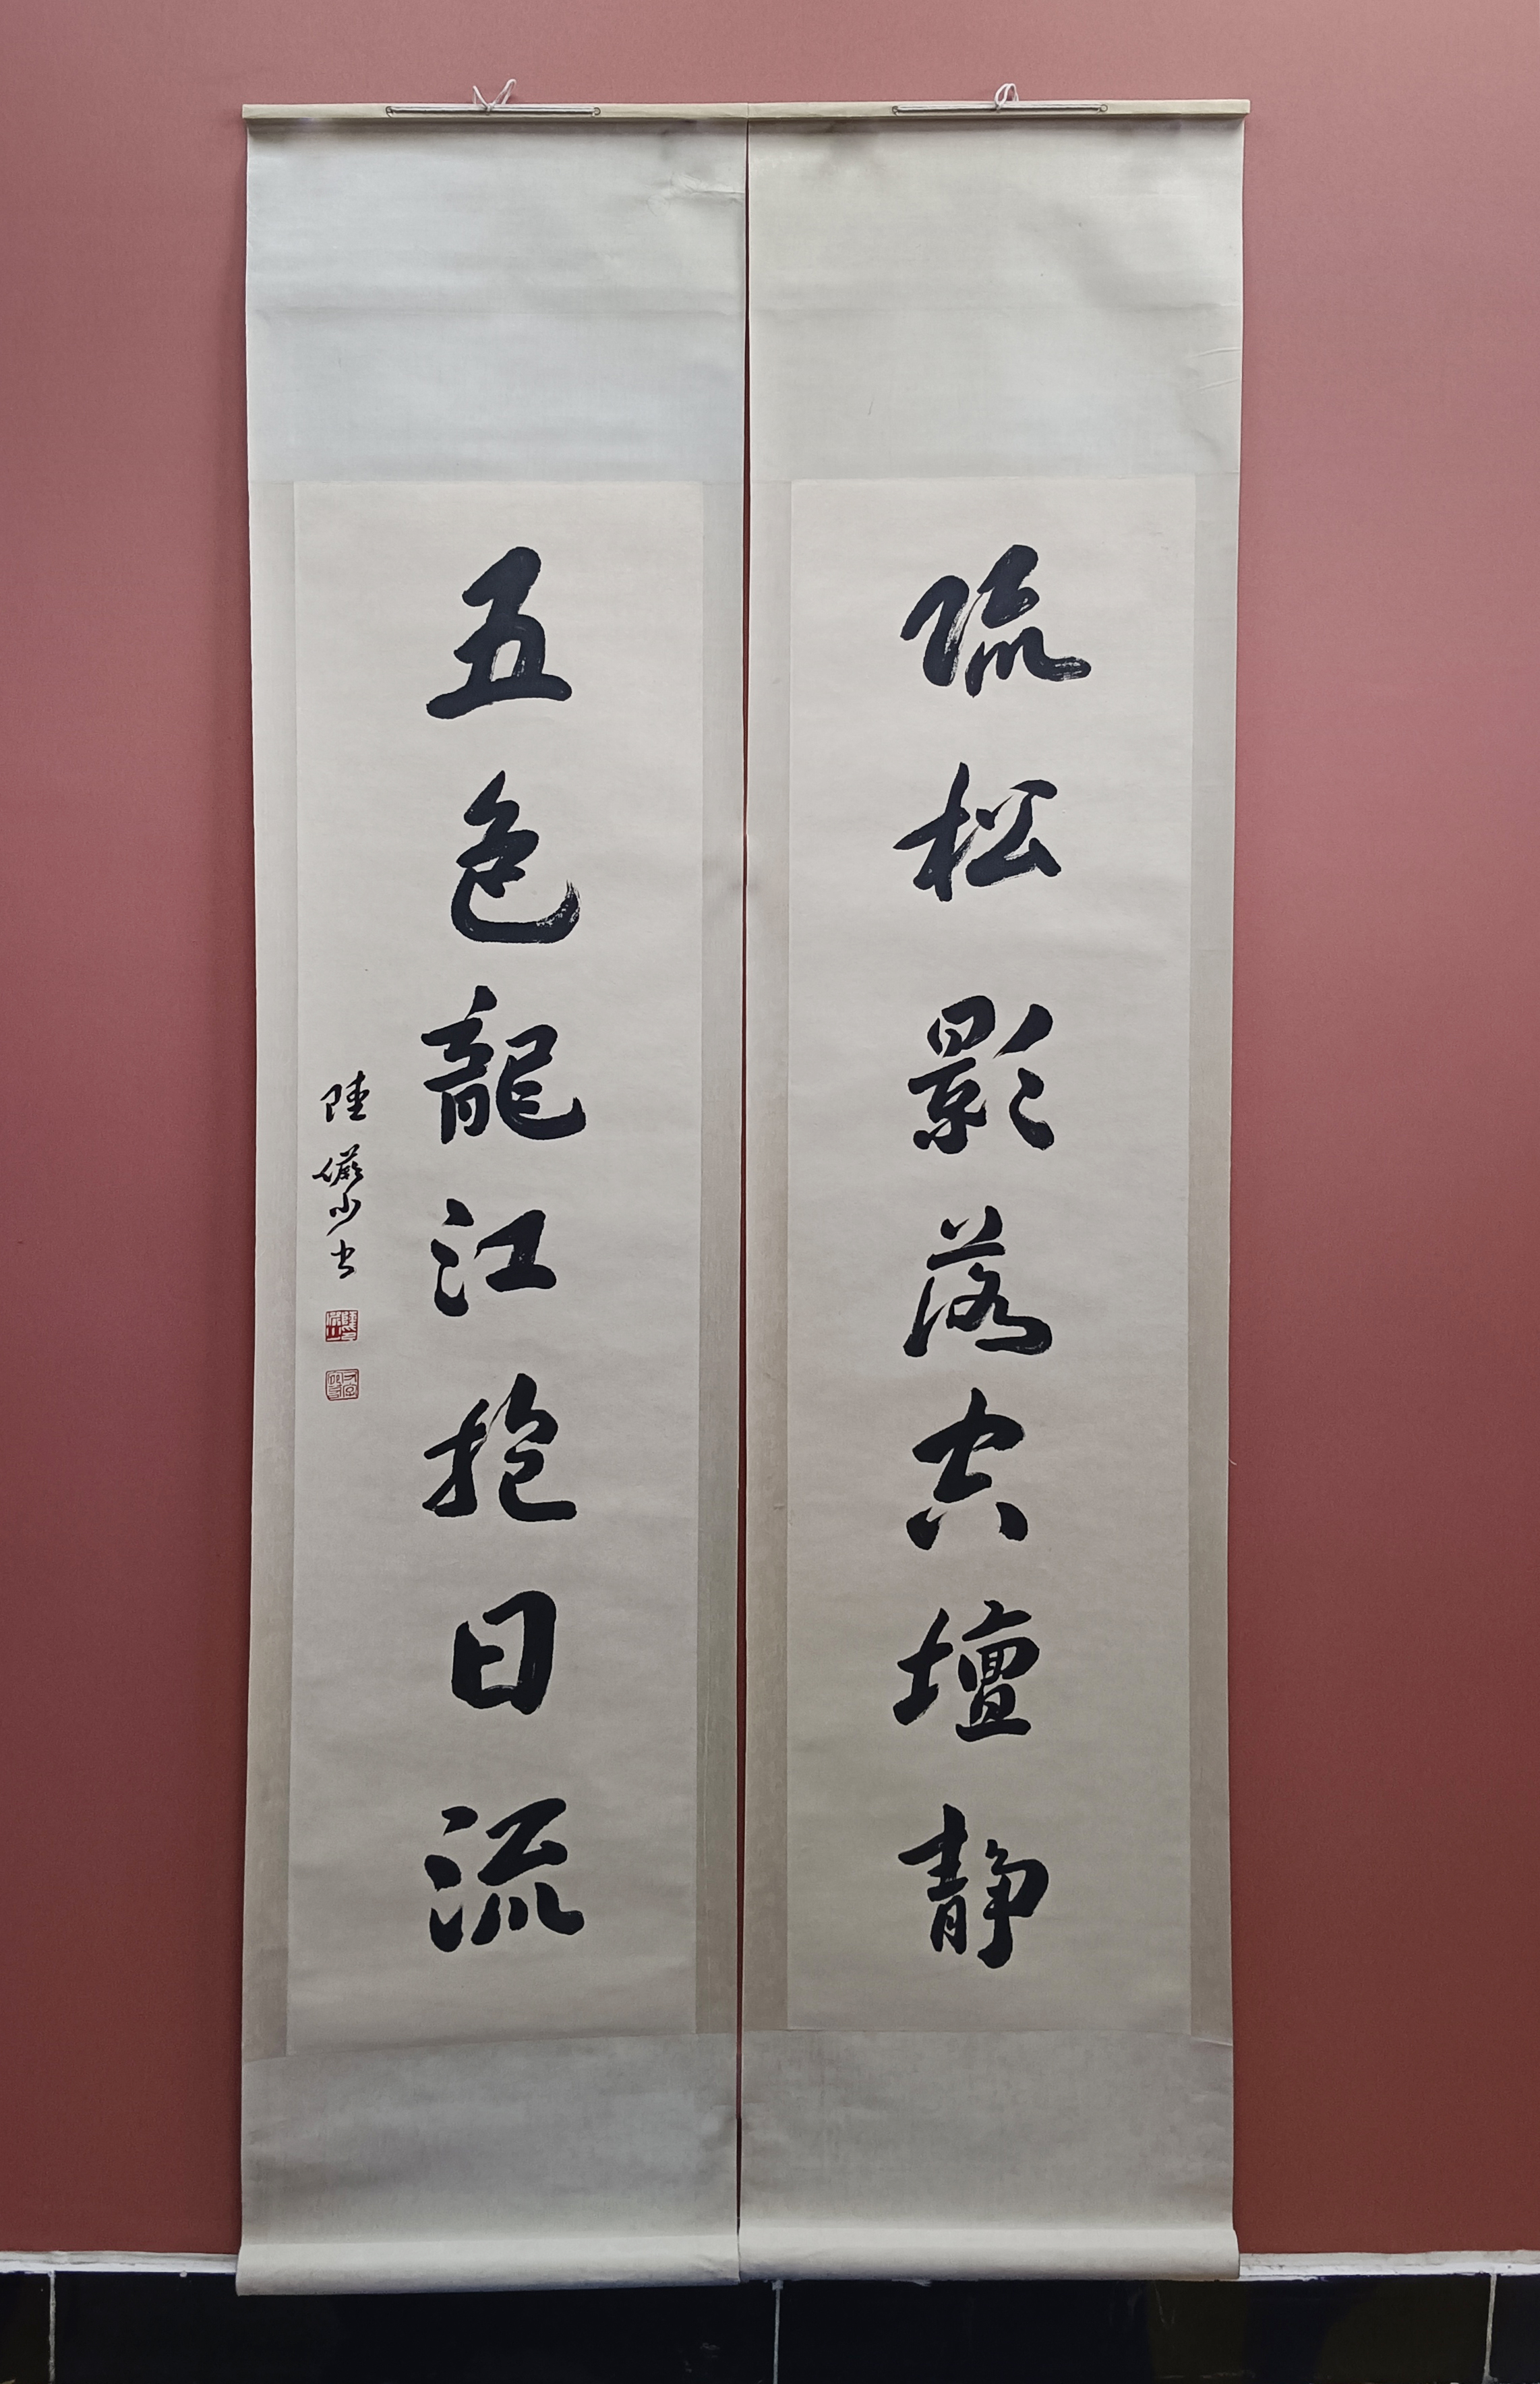 疏松影落空壇静
五色龍江抱日流
陸儼少書